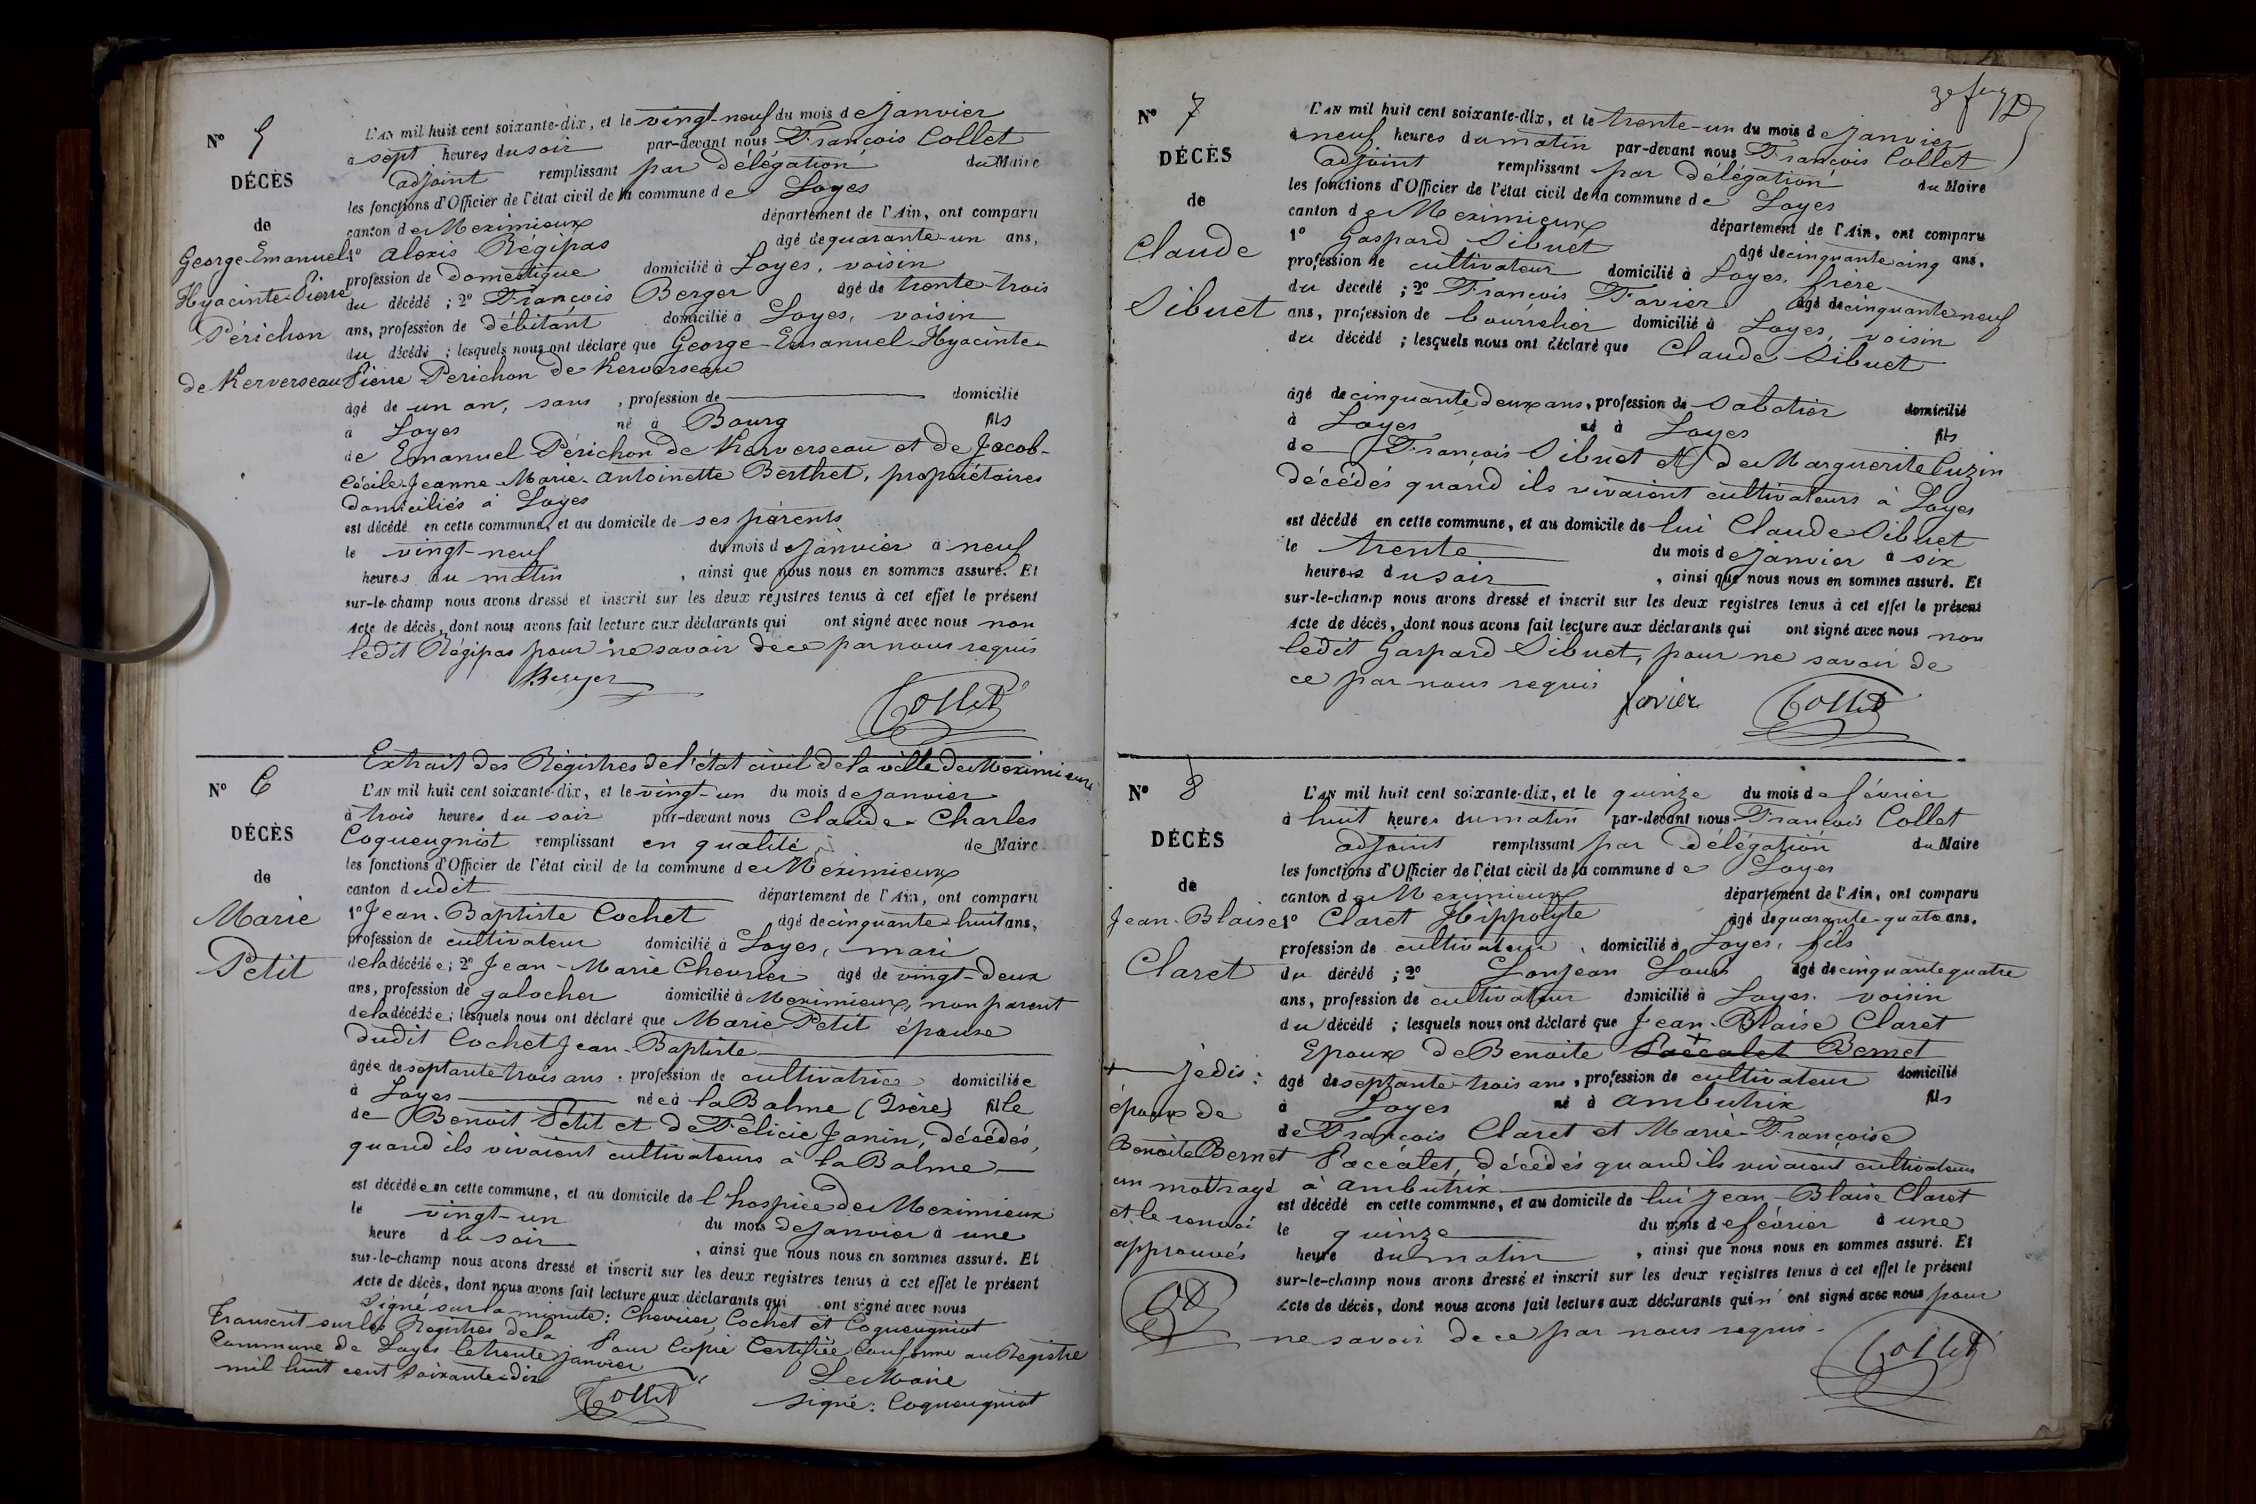 N° 5
DÉCÈS
de
George-Emanuel
Hyacinte-Pierre
Périchon
de Kerverseau
L'AN mil huit cent soixante-dix, et le vingt-neuf du mois de Janvier
à sept heures du soir par-devant nous François Collet
adjoint remplissant par délégation du Maire
les fonctions d'Officier de l'état civil de la commune de Loyes
canton de Meximieux département de l'Ain, ont comparu
1° Alexis Régipas âgé de quarante-un ans,
profession de domestique domicilié à Loyes, voisin
du décédé ; 2° François Berger âgé de trente-trois
ans, profession de débitant domicilié à Loyes, voisin
du décédé ; lesquels nous ont déclaré que George-Emanuel-Hyacinte-
Pierre Perichon de Kerverseau
âgé de un an, sans , profession de domicilié
à Loyes né à Bourg fils
de Emanuel Périchon de Kerverseau et de Jacob-
Cécile-Jeanne-Marie-Antoinette Berthet, propriétaires
domiciliés à Loyes
est décédé en cette commune, et au domicile de ses parents
le vingt-neuf du mois de Janvier à neuf
heures du matin , ainsi que nous nous en sommes assuré. Et
sur-le-champ nous avons dressé et inscrit sur les deux registres tenus à cet effet le présent
Acte de décès, dont nous avons fait lecture aux déclarants qui ont signé avec nous non
ledit Régipas pour ne savoir de ce par nous requis
Berger Collet
Extrait des Régistres de l'état civil de la ville de Meximieux
N° 6
DÉCÈS
de
Marie
Petit
L'AN mil huit cent soixante-dix, et le vingt-un du mois de Janvier
à trois heures du soir par-devant nous Claude-Charles
Coqueugniot remplissant en qualité de Maire
les fonctions d'Officier de l'état civil de la commune de Meximieux
canton dudit département de l'Ain, ont comparu
1° Jean-Baptiste Cochet âgé de cinquante-huit ans,
profession de cultivateur domicilié à Loyes, mari
de la décédée ; 2° Jean-Marie Chevrier âgé de vingt-deux
ans, profession de galocher domicilié à Meximieux, non parent
de la décédée ; lesquels nous ont déclaré que Marie Petit épouse
dudit Cochet Jean-Baptiste
âgée de septante trois ans , profession de cultivatrice domiciliée
à Loyes née à la Balme (Isère) fille
de Benoit Petit et de Félicie Janin, décédés,
quand ils vivaient cultivateurs à la Balme
est décédée en cette commune, et au domicile de l'hospice de Meximieux
le vingt-un du mois de Janvier à une
heure du soir , ainsi que nous nous en sommes assuré. Et
sur-le-champ nous avons dressé et inscrit sur les deux registres tenus à cet effet le présent
Acte de décès, dont nous avons fait lecture aux déclarants qui ont signé avec nous
Signé sur la minute : Chevrier, Cochet et Coqueugniot
Transcrit sur les Registres de la
Commune de Loyes le trente janvier
mil huit cent soixante-dix
Pour Copie Certifiée Conforme au Registre
Le Maire
Signé : Coqueugniot
Collet
N° 7
DÉCÈS
de
Claude
Sibuet
L'AN mil huit cent soixante-dix, et le trente-un du mois de Janvier
à neuf heures du matin par-devant nous François Collet
adjoint remplissant par délégation du Maire
les fonctions d'Officier de l'état civil de la commune de Loyes
canton de Meximieux département de l'Ain, ont comparu
1° Gaspard Sibuet âgé de cinquante cinq ans,
profession de cultivateur domicilié à Loyes, frère
du décédé ; 2° François Favier âgé de cinquante neuf
ans, profession de bourrelier domicilié à Loyes, voisin
du décédé ; lesquels nous ont déclaré que Claude Sibuet
âgé de cinquante deux ans, profession de Sabotier domicilié
à Loyes né à Loyes fils
de François Sibuet et de Marguerite Cuzin
décédés quand ils vivaient cultivateurs à Loyes
est décédé en cette commune, et au domicile de lui Claude Sibuet
le trente du mois de Janvier à six
heures du soir , ainsi que nous nous en sommes assuré. Et
sur-le-champ nous avons dressé et inscrit sur les deux registres tenus à cet effet le présent
Acte de décès, dont nous avons fait lecture aux déclarants qui ont signé avec nous non
ledit Gaspard Sibuet, pour ne savoir de
ce par nous requis
Favier Collet
N° 8
DÉCÈS
de
Jean-Blaise
Claret
L'AN mil huit cent soixante-dix, et le quinze du mois de février
à huit heures du matin par-devant nous François Collet
adjoint remplissant par délégation du Maire
les fonctions d'Officier de l'état civil de la commune de Loyes
canton de Meximieux département de l'Ain, ont comparu
1° Claret Hippolyte âgé de quarante-quatre ans,
profession de cultivateur, domicilié à Loyes, fils
du décédé ; 2° Lonjean Louis âgé de cinquante quatre
ans, profession de cultivateur domicilié à Loyes, voisin
du décédé ; lesquels nous ont déclaré que Jean-Blaise Claret
Epoux de Benoite Paccalet Bernet
âgé de septante trois ans, profession de cultivateur domicilié
à Loyes né à Ambutrix fils
de François Claret et Marie-Françoise
Paccalet, décédés quand ils vivaient cultivateurs
à Ambutrix
est décédé en cette commune, et au domicile de lui Jean-Blaise Claret
le quinze du mois de février à une
heure du matin , ainsi que nous nous en sommes assuré. Et
sur-le-champ nous avons dressé et inscrit sur les deux registres tenus à cet effet le présent
Acte de décès, dont nous avons fait lecture aux déclarants qui n'ont signé avec nous pour
ne savoir de ce par nous requis.
Collet
+ je dis :
époux de
Benoite Bernet
un mot rayé
et le renvoi
approuvés